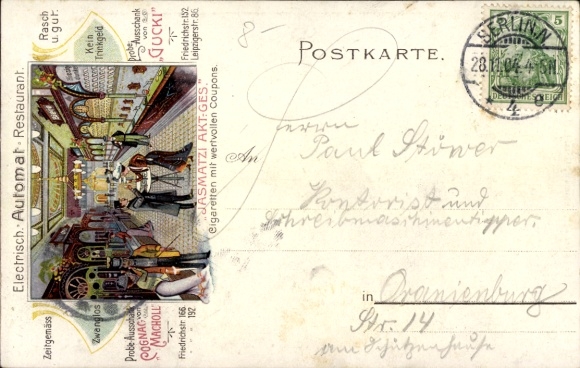 Rasch
u. gut.
Kein
Trinkgeld
Probe Ausschank
von
"JUCKI"
Friedrichstr. 152.
Leipzigerstr. 86.
Electrisch. Automat-Restaurant.
"JASMATZI AKT: GES."
Cigaretten mit wertvollen Coupons.
Zeitgemäss
Zwanglos
Probe-Ausschank
COGNAC von
MACHOLL
Friedrichstr. 166
192
8-
POSTKARTE.
BERLIN.N
28.11.04. 4-5N
4 e
5
DEUTSCHES REICH
Herrn
An Paul Stöwer
Kontorist und
Schreibmaschinentipper.
in Oranienburg
Str. 14
am Schützenhause